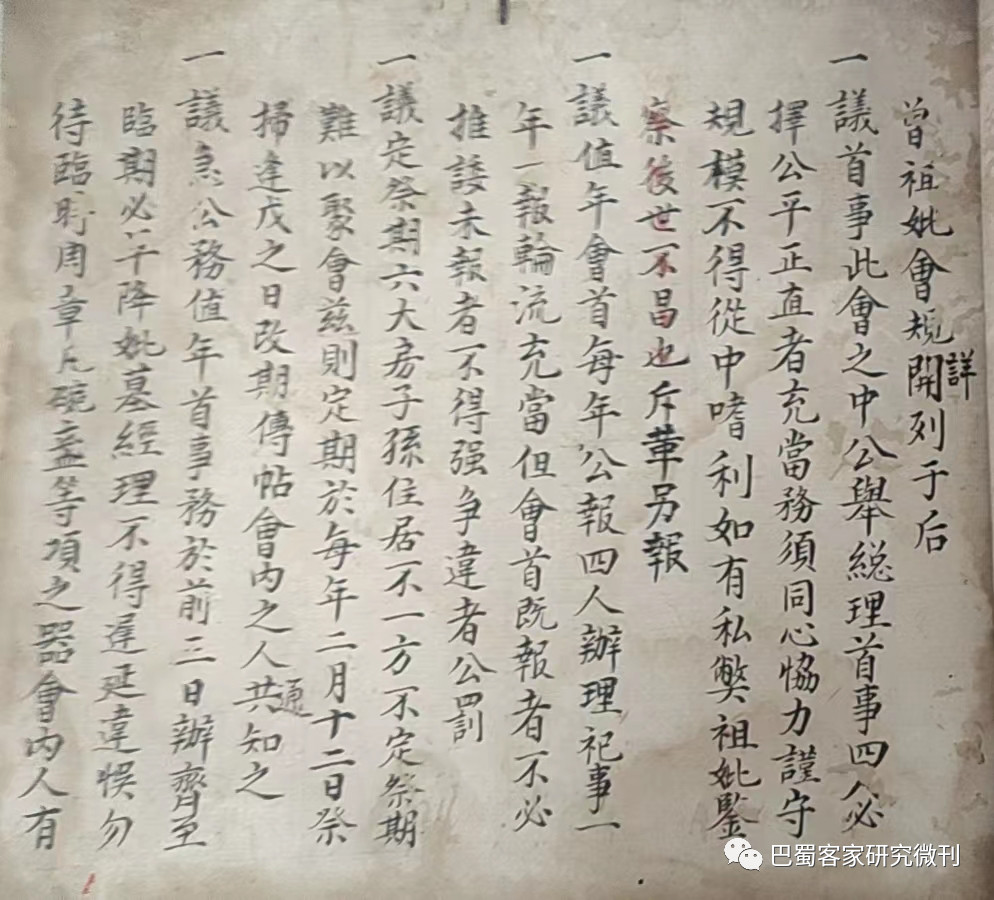 曾祖妣會規開列于后
詳
一議首事此會之中公舉総理首事四人必
擇公平正直者充當務須同心恊力謹守
規模不得從中嗜利如有私獘祖妣鑒
察後世不昌也斥革另報
一議值年會首每年公報四人辦理祀事一
年一報輪流充當但會首既報者不必
推諉未報者不得强争違者公罰
一議定祭期六大房子孫住居不一方不定祭期
難以聚會兹則定期於每年二月十二日祭
掃逢戊之日改期傳帖會内之人共知之
通
一議急公務值年首事務於前三日辦齊至
臨期必竿降妣墓經理不得遲延違悮勿
待臨時周章凡碗盞等項之器會内人有
巴蜀客家研究微刊